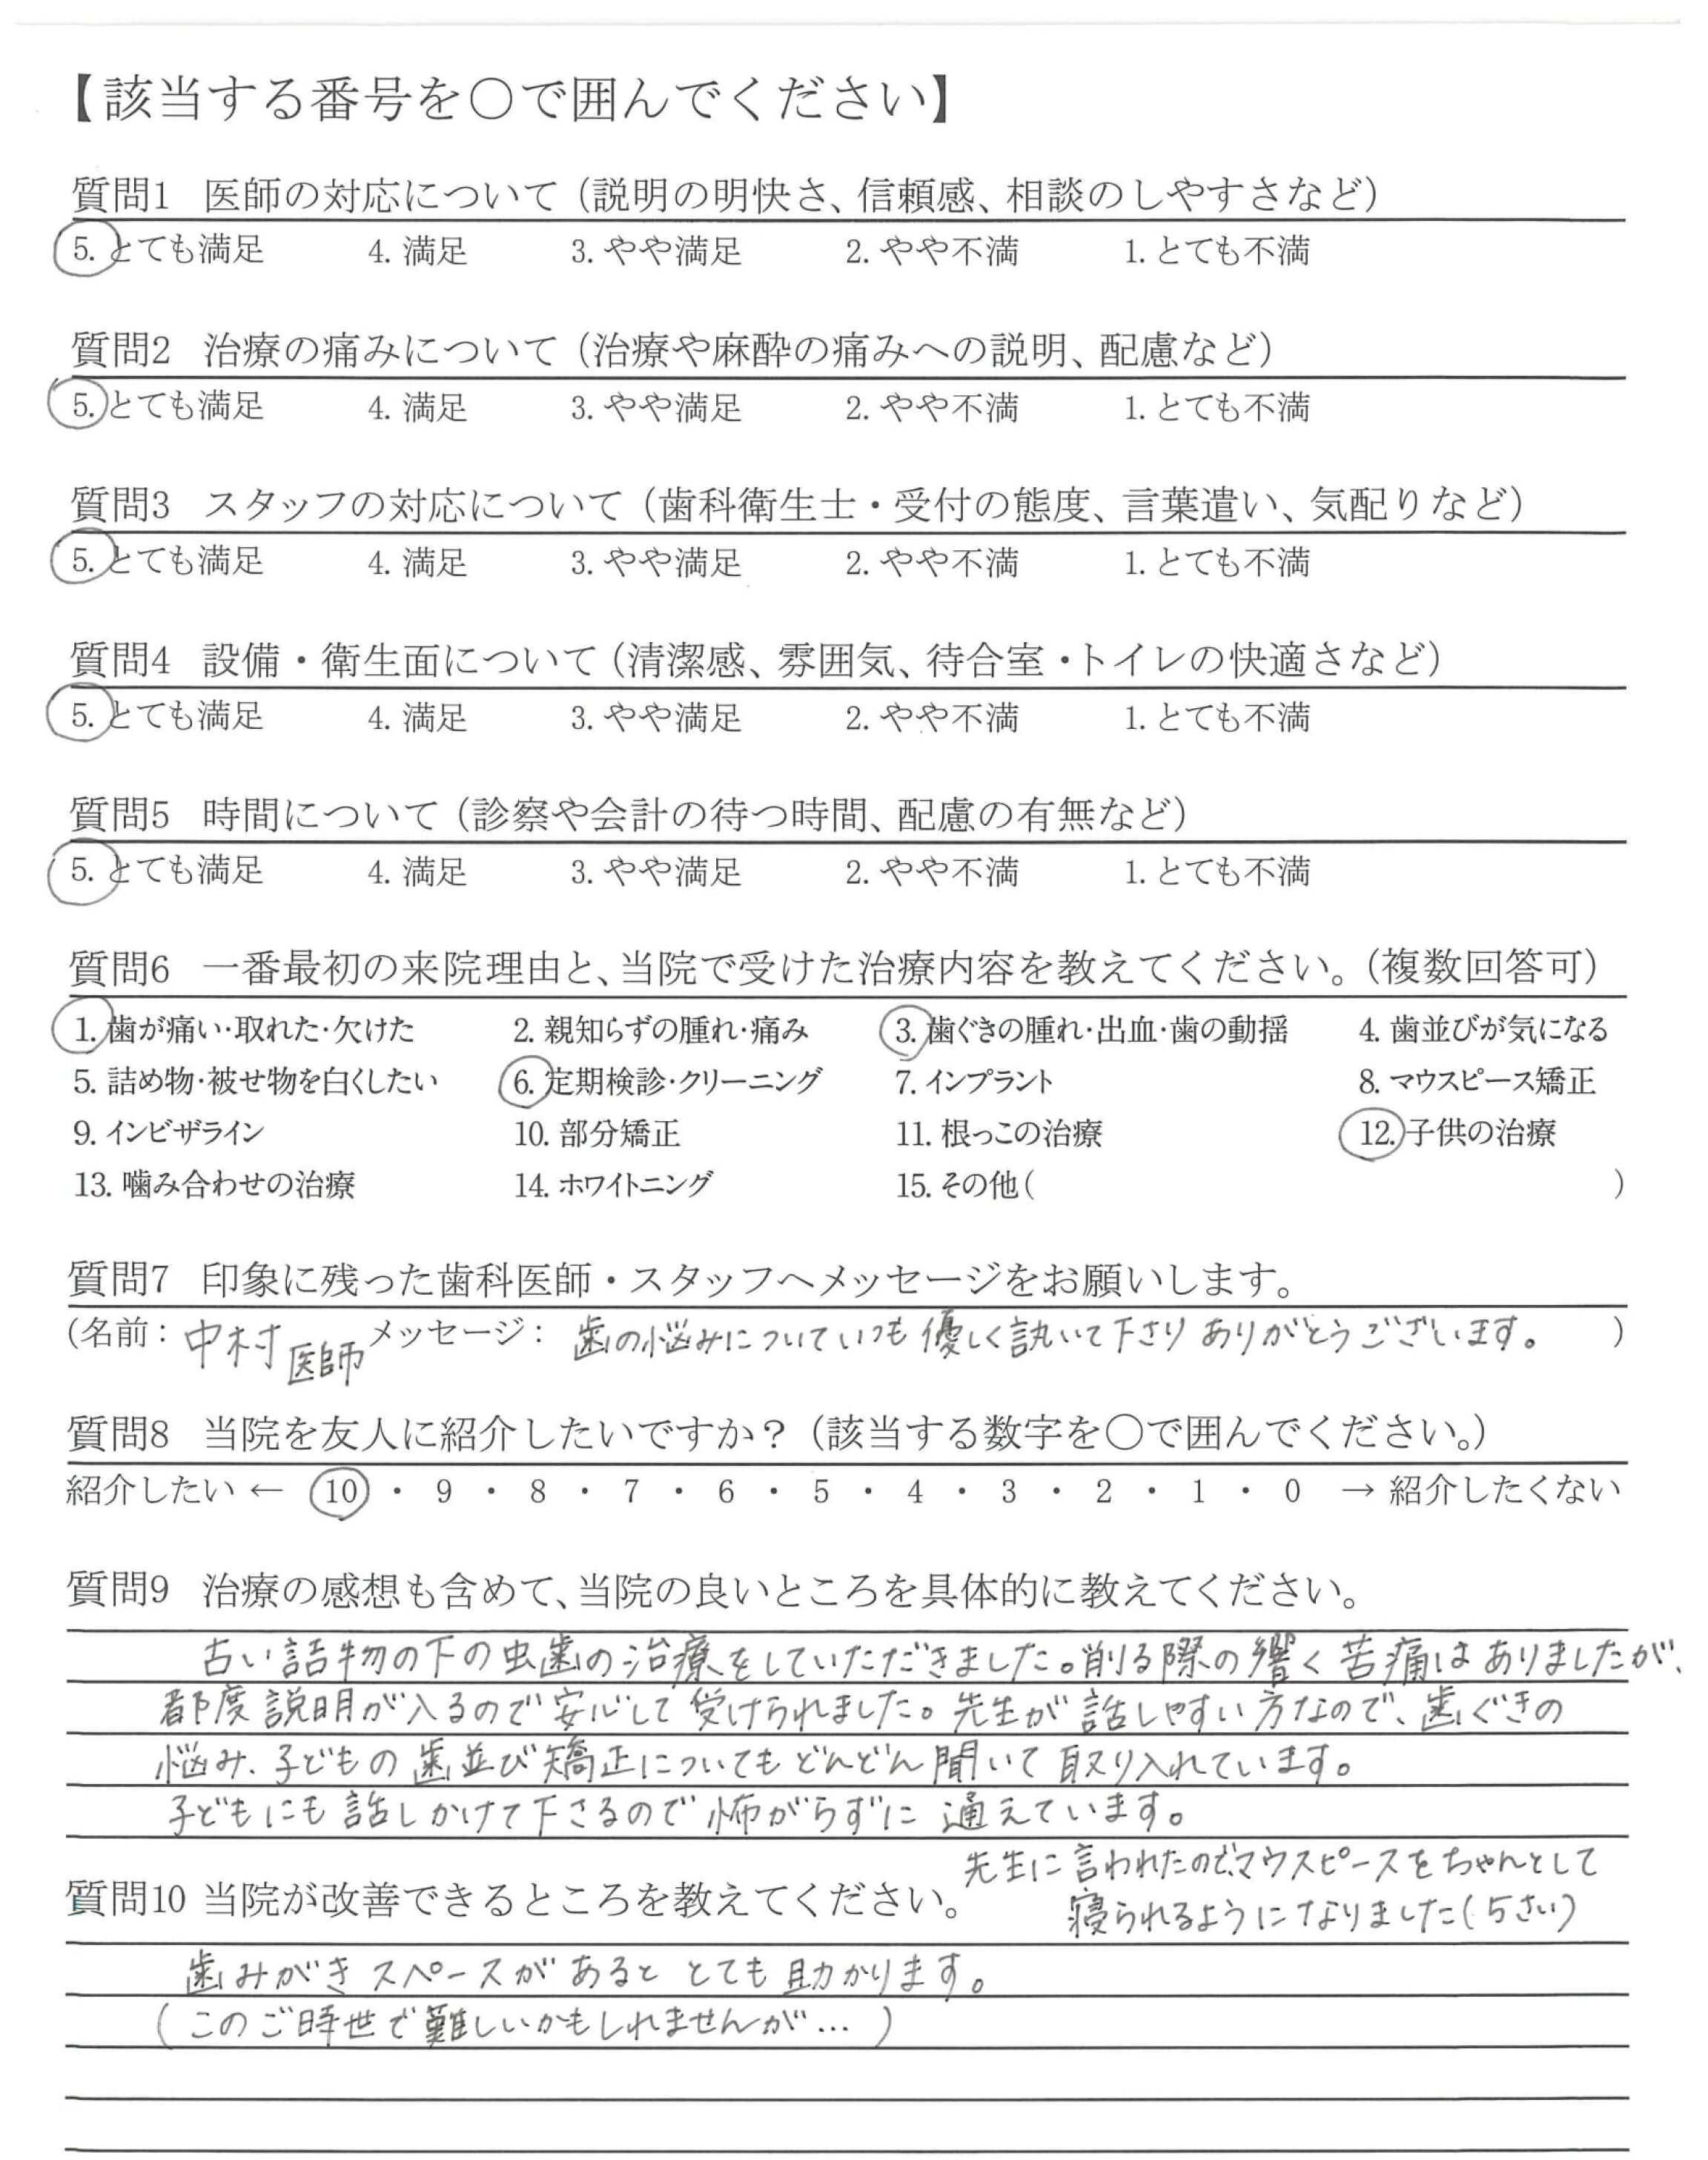 【該当する番号を〇で囲んでください】
質問1 医師の対応について（説明の明快さ、信頼感、相談のしやすさなど）
5. とても満足 4. 満足 3. やや満足 2. やや不満 1. とても不満
質問2 治療の痛みについて（治療や麻酔の痛みへの説明、配慮など）
5. とても満足 4. 満足 3. やや満足 2. やや不満 1. とても不満
質問3 スタッフの対応について（歯科衛生士・受付の態度、言葉遣い、気配りなど）
5. とても満足 4. 満足 3. やや満足 2. やや不満 1. とても不満
質問4 設備・衛生面について（清潔感、雰囲気、待合室・トイレの快適さなど）
5. とても満足 4. 満足 3. やや満足 2. やや不満 1. とても不満
質問5 時間について（診察や会計の待つ時間、配慮の有無など）
5. とても満足 4. 満足 3. やや満足 2. やや不満 1. とても不満
質問6 一番最初の来院理由と、当院で受けた治療内容を教えてください。（複数回答可）
1. 歯が痛い・取れた・欠けた 2. 親知らずの腫れ・痛み 3. 歯ぐきの腫れ・出血・歯の動揺 4. 歯並びが気になる
5. 詰め物・被せ物を白くしたい 6. 定期検診・クリーニング 7. インプラント 8. マウスピース矯正
9. インビザライン 10. 部分矯正 11. 根っこの治療 12. 子供の治療
13. 噛み合わせの治療 14. ホワイトニング 15. その他（ ）
質問7 印象に残った歯科医師・スタッフへメッセージをお願いします。
（名前： 中村医師 メッセージ： 歯の悩みについていつも優しく訊いて下さりありがとうございます。 ）
質問8 当院を友人に紹介したいですか？（該当する数字を〇で囲んでください。）
紹介したい ← 10 ・ 9 ・ 8 ・ 7 ・ 6 ・ 5 ・ 4 ・ 3 ・ 2 ・ 1 ・ 0 → 紹介したくない
質問9 治療の感想も含めて、当院の良いところを具体的に教えてください。
古い詰物の下の虫歯の治療をしていただきました。削る際の響く苦痛はありましたが、
都度説明が入るので安心して受けられました。先生が話しやすい方なので、歯ぐきの
悩み、子どもの歯並び矯正についてもどんどん聞いて取り入れています。
子どもにも話しかけて下さるので怖がらずに通えています。
先生に言われたので、マウスピースをちゃんとして
寝られるようになりました（5さい）
質問10 当院が改善できるところを教えてください。
歯みがきスペースがあるととても助かります。
（このご時世で難しいかもしれませんが…）